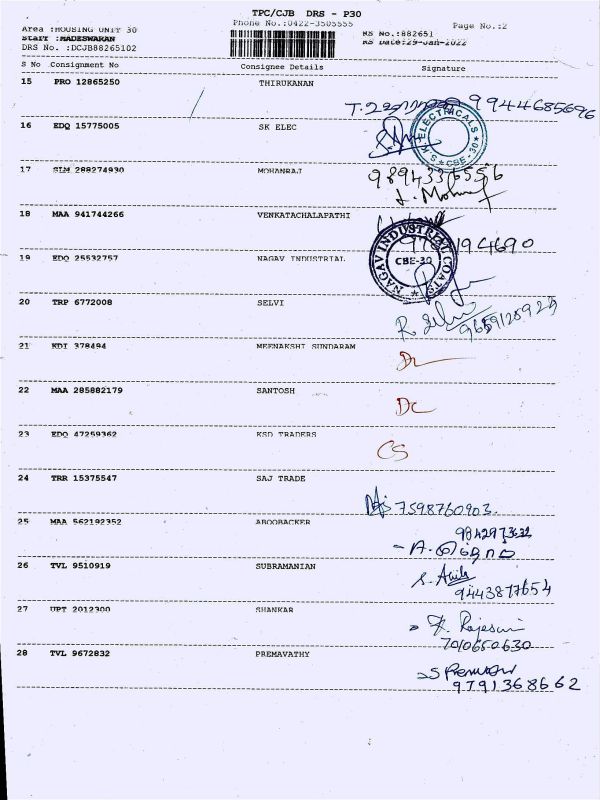 TPC/CJB DRS - P30
Phone No.:0422-3505555
Page No.:2
Area :HOUSING UNIT 30
RS No.:882651
Staff :MADESWARAN
RS Date:29-Jan-2022
DRS No. :DCJB88265102
S No Consignment No Consignee Details Signature
15 PRO 12865250 THIRUKANAN
9944685696
16 EDQ 15775005 SK ELEC
S.K ELECTRICALS ★ CBE-30 ★
17 SLM 288274930 MOHANRAJ
9894336556
18 MAA 941744266 VENKATACHALAPATHI
19 EDQ 25532757 NAGAV INDUSTRIAL
NAGAV INDUSTRIAL COATS ★
CBE-30
20 TRP 6772008 SELVI
R. Selvi
21 KDI 378494 MEENAKSHI SUNDARAM
22 MAA 285882179 SANTOSH
DC
23 EDQ 47259362 KSD TRADERS
CS
24 TRR 15375547 SAJ TRADE
7598760903.
25 MAA 562192352 ABOOBACKER
26 TVL 9510919 SUBRAMANIAN
9443877654
27 UPT 2012300 SHANKAR
7010650630
28 TVL 9672832 PREMAVATHY
9791368662